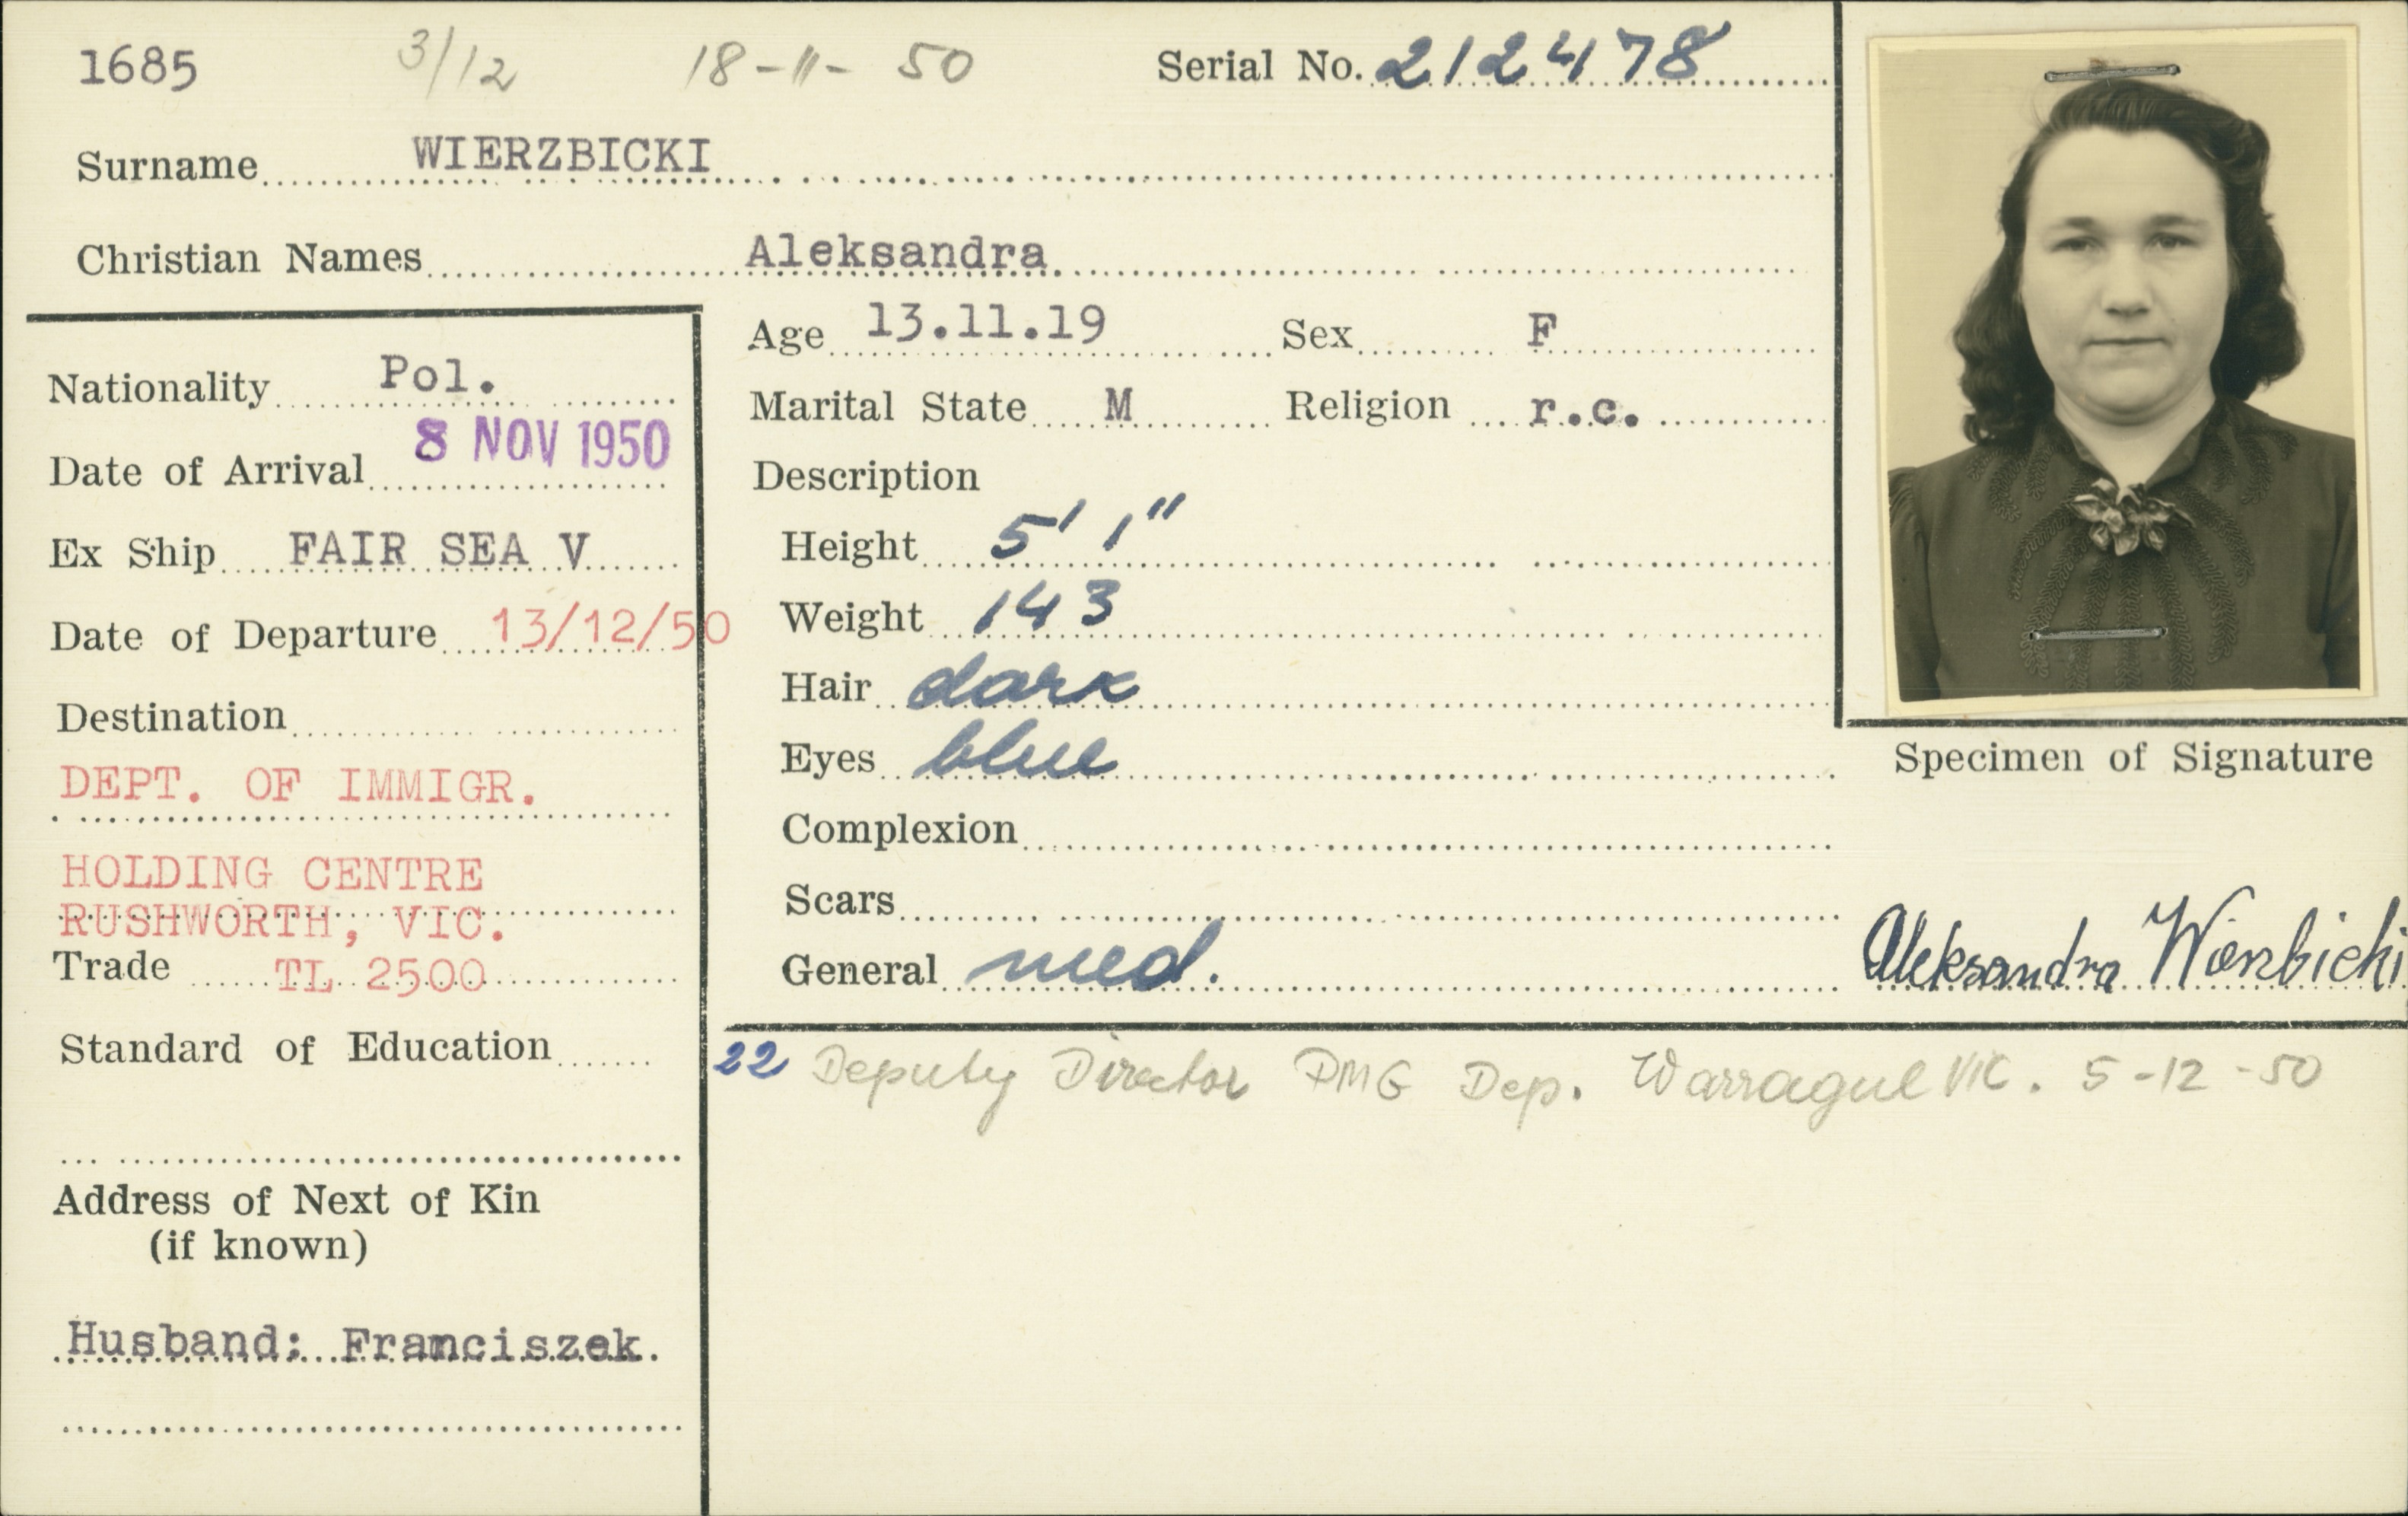 1685 3/12 18-11-50 Serial No. 212478
Surname WIERZBICKI
Christian Names Aleksandra
Age 13.11.19 Sex F
Nationality Pol.
Marital State M Religion r.c.
Date of Arrival 8 NOV 1950
Description
Ex Ship FAIR SEA V
Height 5' 1"
Date of Departure 13/12/50
Weight 143
Hair dark
Destination
DEPT. OF IMMIGR.
Eyes blue
Specimen of Signature
Complexion
HOLDING CENTRE
RUSHWORTH, VIC.
Scars
Trade TL 2500
General med.
Aleksandra Wierzbicki
Standard of Education
22 Deputy Director PMG Dep. Warragul VIC. 5-12-50
Address of Next of Kin
(if known)
Husband: Franciszek.